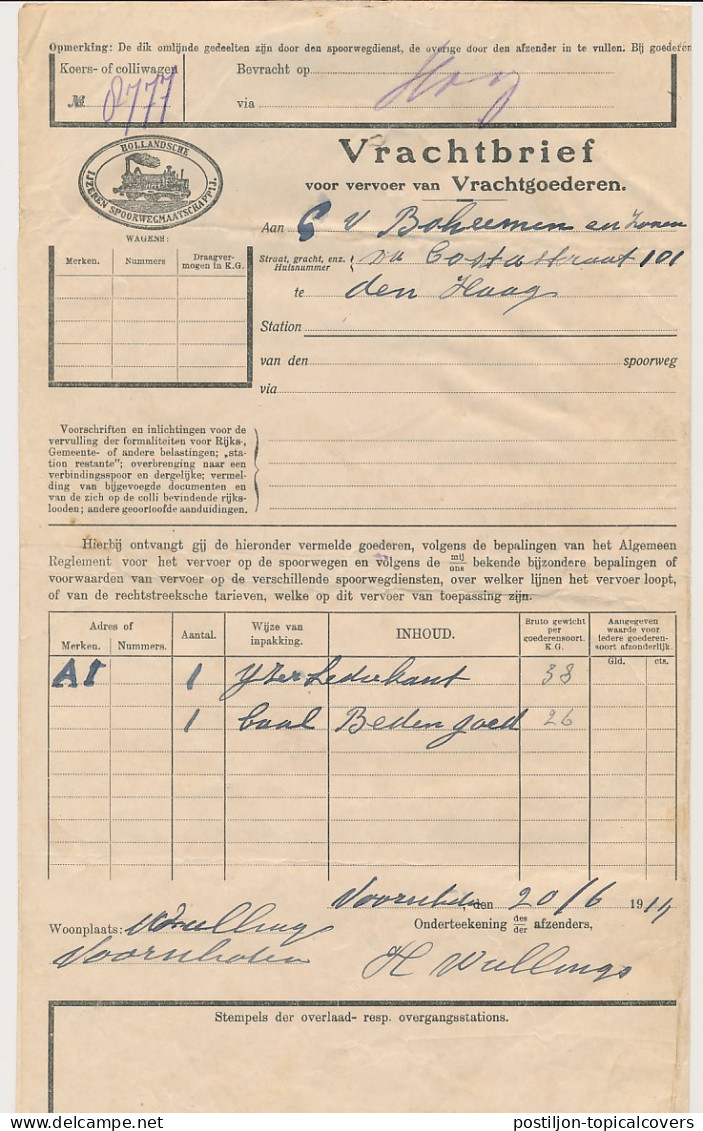 Opmerking: De dik omlijnde gedeelten zijn door den spoorwegdienst, de overige door den afzender in te vullen. Bij goederen
Koers- of colliwagen
№ 8777
Bevracht op
Haag
via
HOLLANDSCHE
IJZEREN SPOORWEGMAATSCHAPPIJ.
Vrachtbrief
voor vervoer van Vrachtgoederen.
Aan G v Boheemen en Zonen
Straat, gracht, enz. Huisnummer da Costastraat 101
te den Haag
Station
van den spoorweg
via
WAGENS:
Merken. Nummers Draagver-
mogen in K.G.
Voorschriften en inlichtingen voor de
vervulling der formaliteiten voor Rijks-,
Gemeente- of andere belastingen; „sta-
tion restante"; overbrenging naar een
verbindingsspoor en dergelijke; vermel-
ding van bijgevoegde documenten en
van de zich op de colli bevindende rijks-
looden; andere geoorloofde aanduidingen.
Hierbij ontvangt gij de hieronder vermelde goederen, volgens de bepalingen van het Algemeen
Reglement voor het vervoer op de spoorwegen en volgens de mij/ons bekende bijzondere bepalingen of
voorwaarden van vervoer op de verschillende spoorwegdiensten, over welker lijnen het vervoer loopt,
of van de rechtstreeksche tarieven, welke op dit vervoer van toepassing zijn.
Adres of
Merken. Nummers.
Aantal.
Wijze van
inpakking.
INHOUD.
Bruto gewicht
per
goederensoort.
K.G.
Aangegeven
waarde voor
iedere goederen-
soort afzonderlijk.
Gld. cts.
AI 1 Yzer Ledikant 38
1 baal Beddengoed 26
Voorschoten, den 20/6 1914
Woonplaats: Wullings
Voorschoten
Onderteekening des/der afzenders,
H Wullings
Stempels der overlaad- resp. overgangsstations.
postiljon-topicalcovers
postiljon-topicalcovers